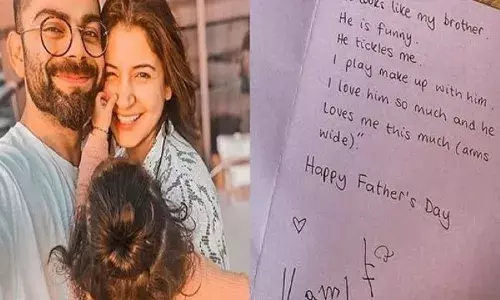 looks like my brother.
He is funny.
He tickles me.
I play make up with him.
I love him so much and he
Loves me this much (arms
wide)."
Happy Father's Day